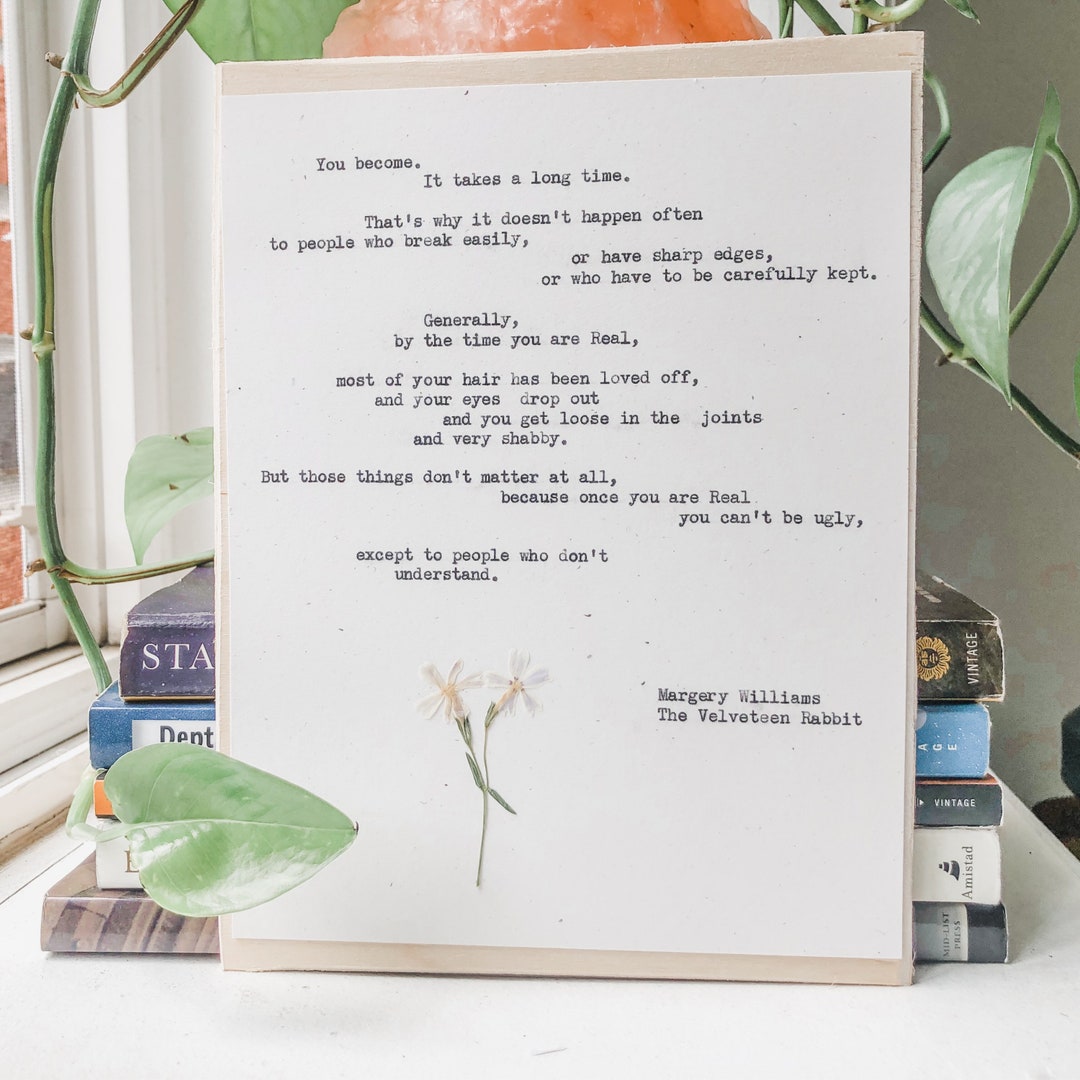 You become.
It takes a long time.
That's why it doesn't happen often
to people who break easily,
or have sharp edges,
or who have to be carefully kept.
Generally,
by the time you are Real,
most of your hair has been loved off,
and your eyes drop out
and you get loose in the joints
and very shabby.
But those things don't matter at all,
because once you are Real
you can't be ugly,
except to people who don't
understand.
Margery Williams
The Velveteen Rabbit
STA
Dept
E
VINTAGE
AGE
VINTAGE
Amistad
MID-LIST
PRESS